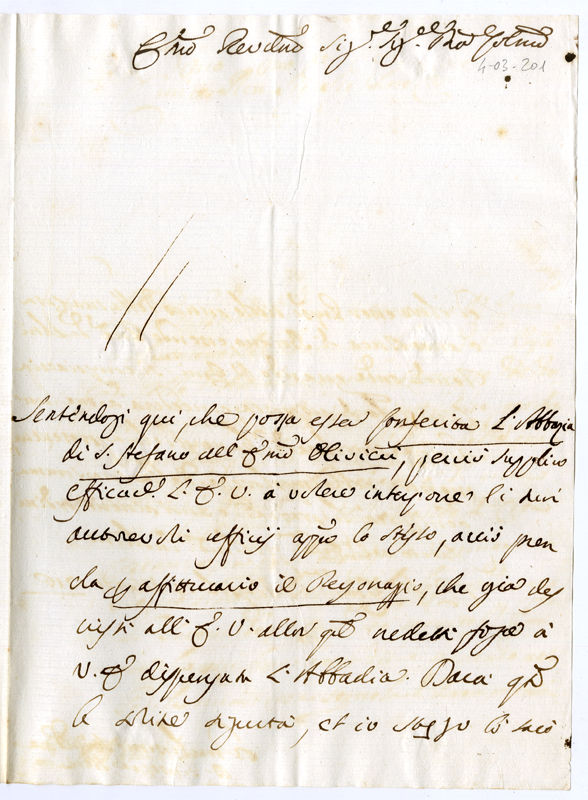 Em̃o Revd̃mo Sig.re Sig.re Prõn Colmõ
4-03-201
Sentendosi qui, che possa esser conferita l'Abbazia
di S. Stefano all'Em̃o Olivieri, perciò supplico
efficacem.te L'E. V. à volere interporre li suoi
autorevoli officij app̃o lo stesso, acciò pren
da p affittuario il Personaggio, che già des
crissi all'E. V. allor q̃do vedetti fosse à
V. E. dispensata l'Abbadia. Darà q̃to
le solite sigurtà, et io stesso lo sarò